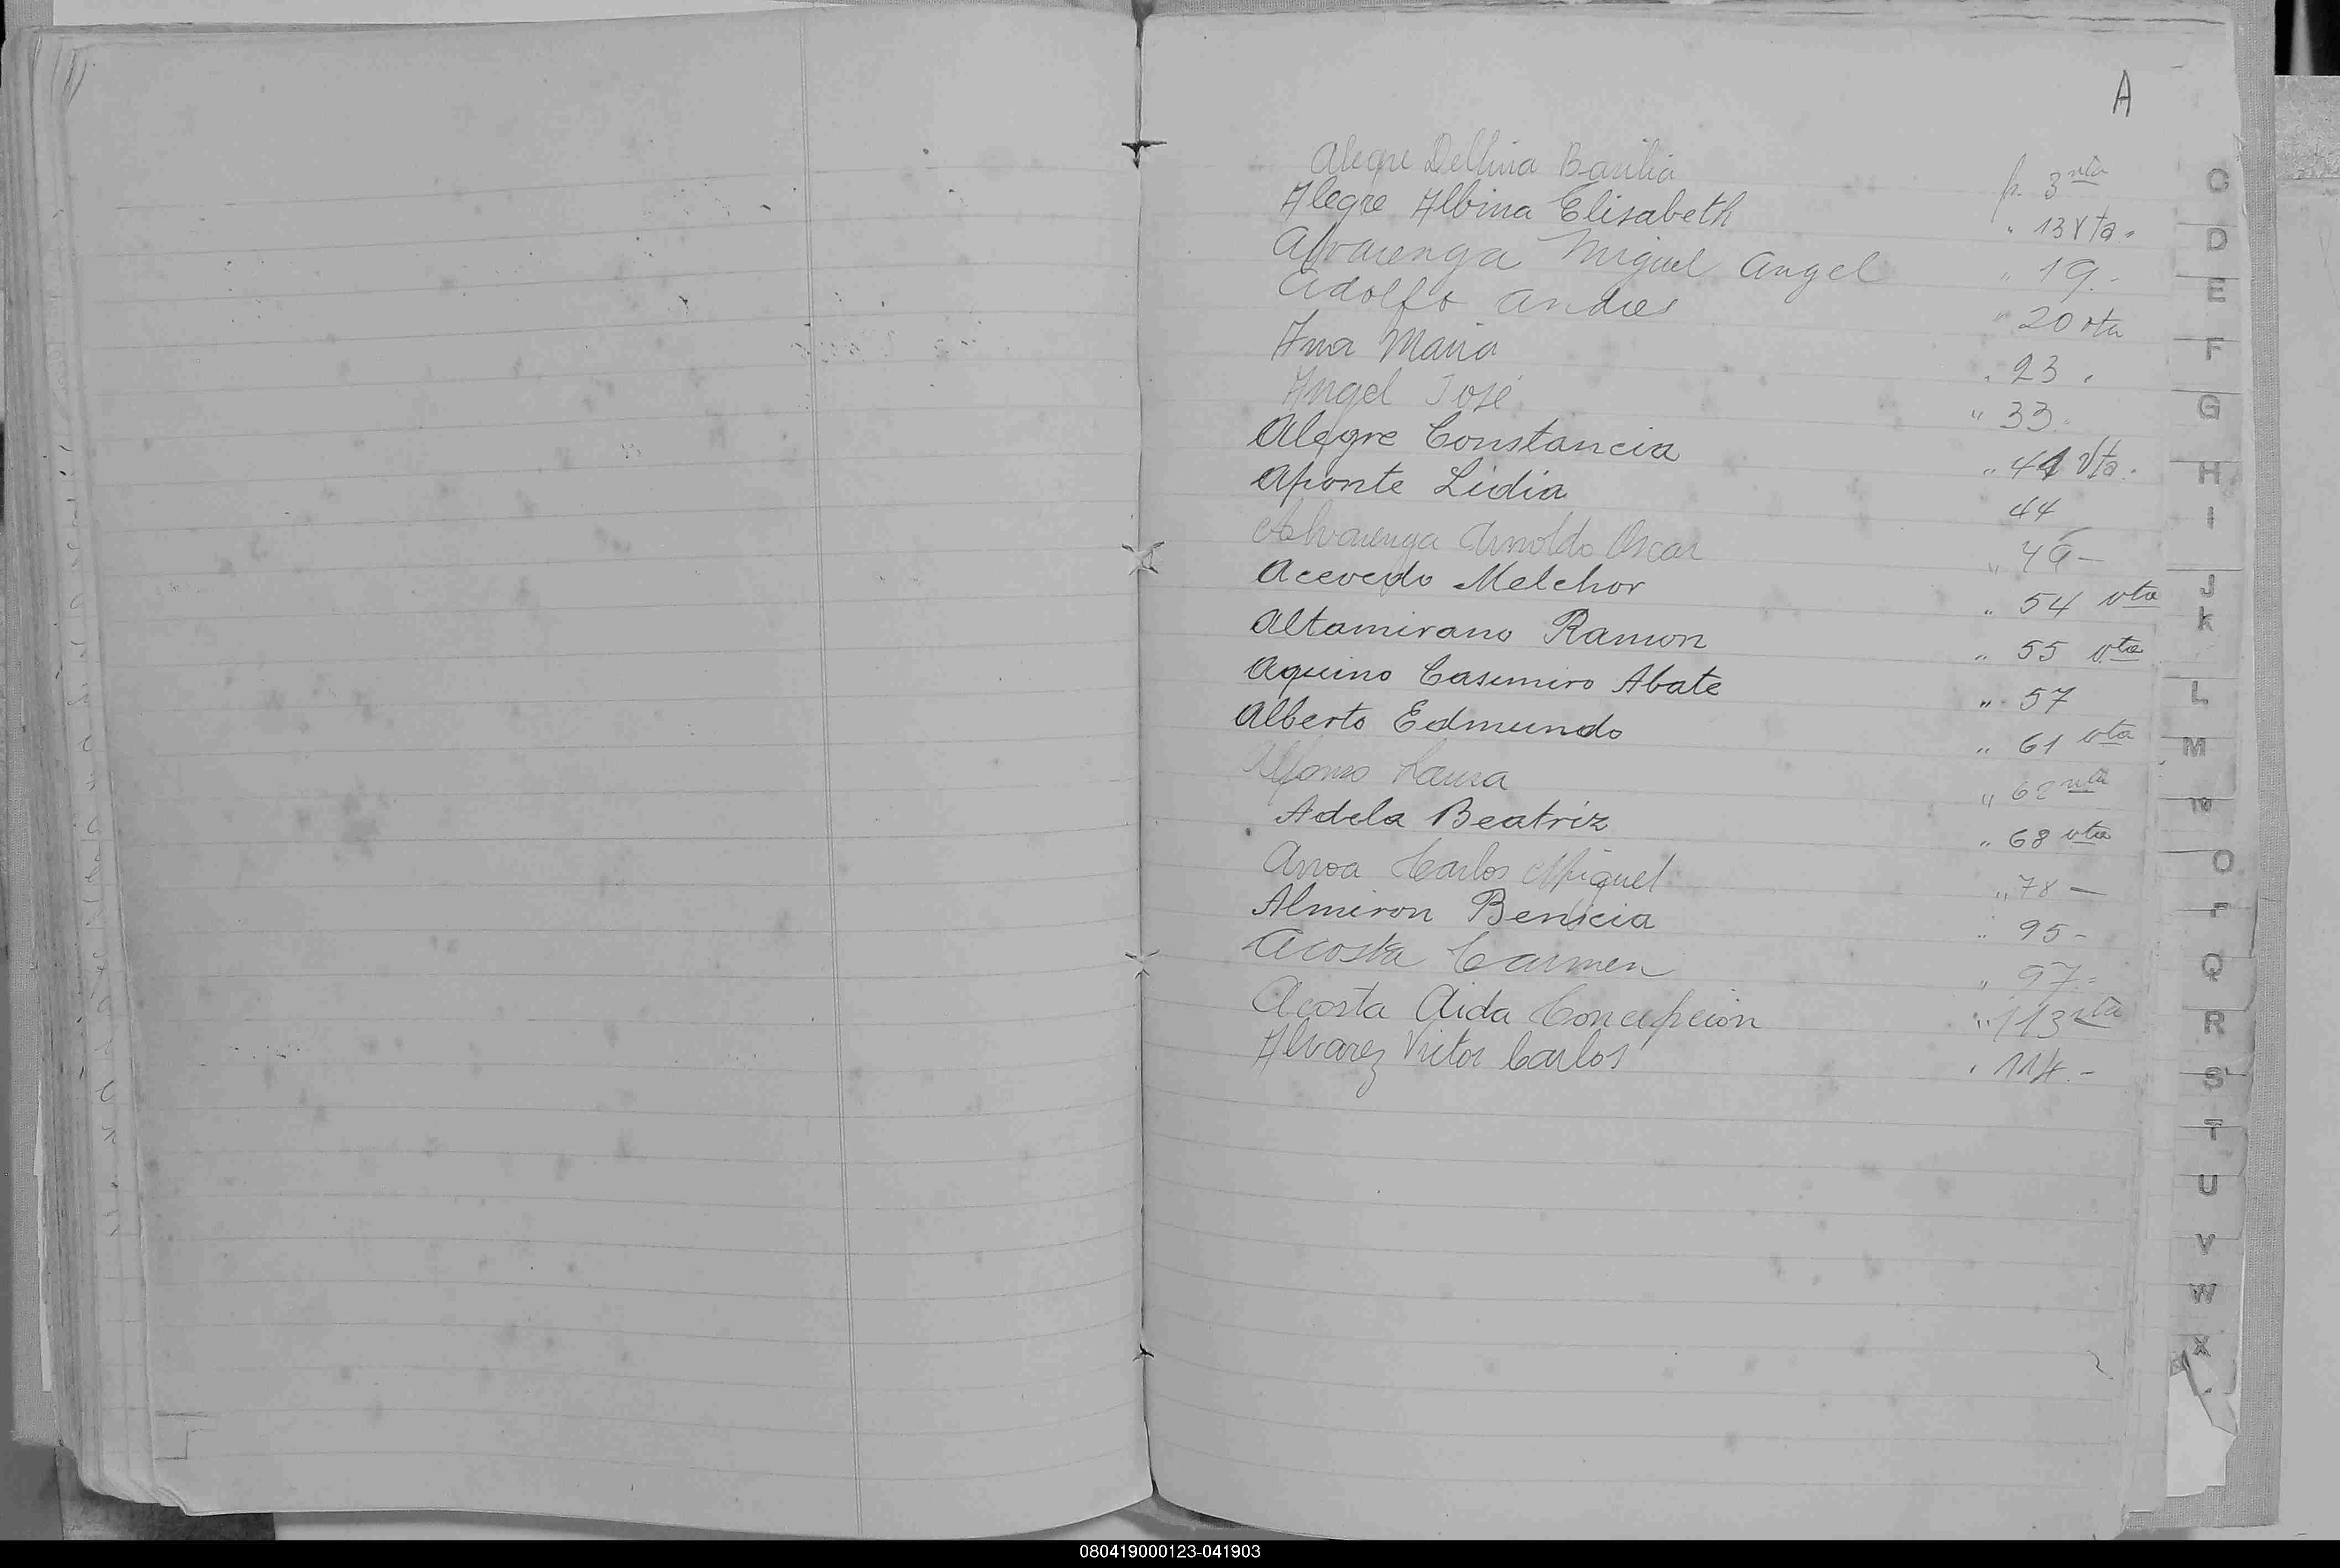 A
Alegre Delfina Basilia p. 3 vta
Alegre Albina Elisabeth " 13 Vta.
Alvarenga Miguel Angel " 19.-
Adolfo Andres " 20 vta
Ana Maria " 23 .
Angel José " 33.
Alegre Constancia " 41 Vta.
Aponte Lidia 44
Alvarenga Arnoldo Oscar "
Acevedo Melchor " 54 vta
Altamirano Ramon " 55 vta
Aquino Casimiro Abate " 57
Alberto Edmundo " 61 vta
Alfonso Laura " vta
Adela Beatriz " 68 vta
Carlos Miguel " 78 —
Almiron Benicia " 95 -
Acosta Carmen " 97.=
Acosta Aida Concepcion " 113 vta
Alvarez Victor Carlos " 114.-
C
D
E
F
G
H
I
J
K
L
M
N
O
P
Q
R
S
T
U
V
W
X
080419000123-041903